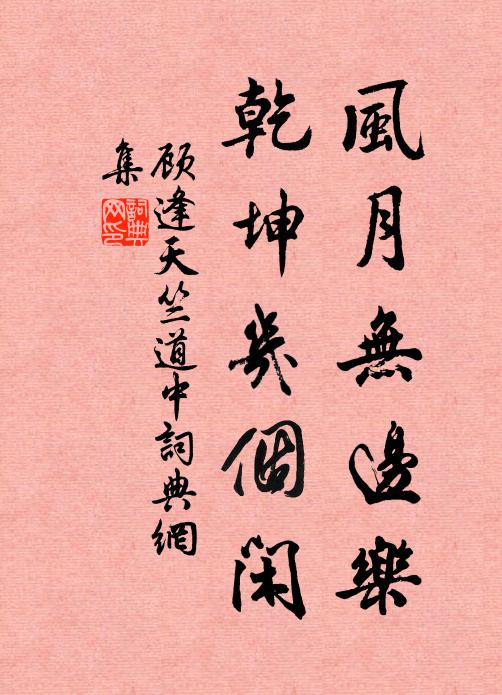 風月無邊樂
乾坤幾個閑
顾逢天竺道中詞典網
集
詞典
网印